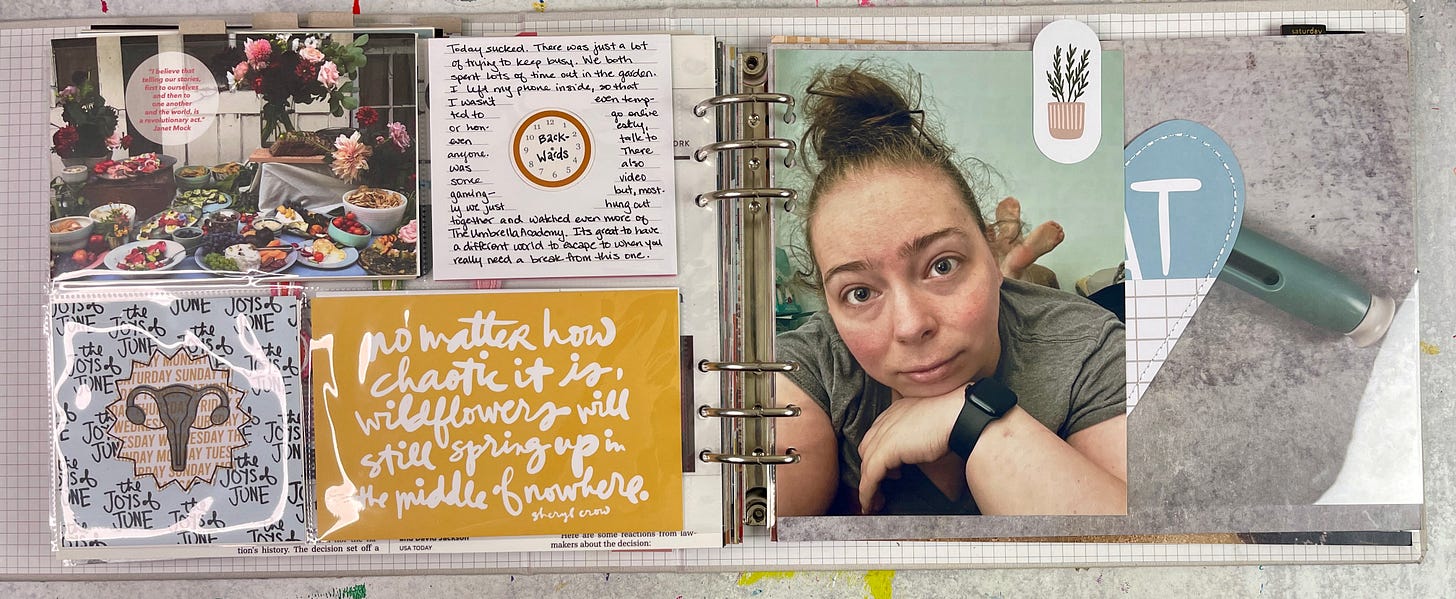 "I believe that
telling our stories,
first to ourselves
and then to
one another
and the world, is
a revolutionary act."
Janet Mock
Today sucked. There was just a lot
of trying to keep busy. We both
spent lots of time out in the garden.
I left my phone inside, so that
I wasn't even temp-
ted to go online
or hon- estly,
even talk to
anyone. There
was also
some video
gaming- but, most-
ly we just hung out
together and watched even more of
The Umbrella Academy. Its great to have
a different world to escape to when you
really need a break from this one.
12
11 1
10 Back- 2
9 • 3
8 Wards 4
7 6 5
the
JOYS of
JUNE
the
JOYS of
JUNE
the
JOYS of
JUNE
the
JOYS of
JUNE
DAY MONDAY
ATURDAY SUNDAY
DAY THURSDAY FRIDAY
WEDNESDAY
ESDAY WEDNESDAY TH
NDAY MONDAY TUES
RDAY SUNDAY
no matter how
chaotic it is,
wildflowers will
still spring up in
the middle of nowhere.
sheryl crow
tion's history. The decision set off a
and David Jackson
USA TODAY
Here are some reactions from law-
makers about the decision:
ORK
saturday
AT